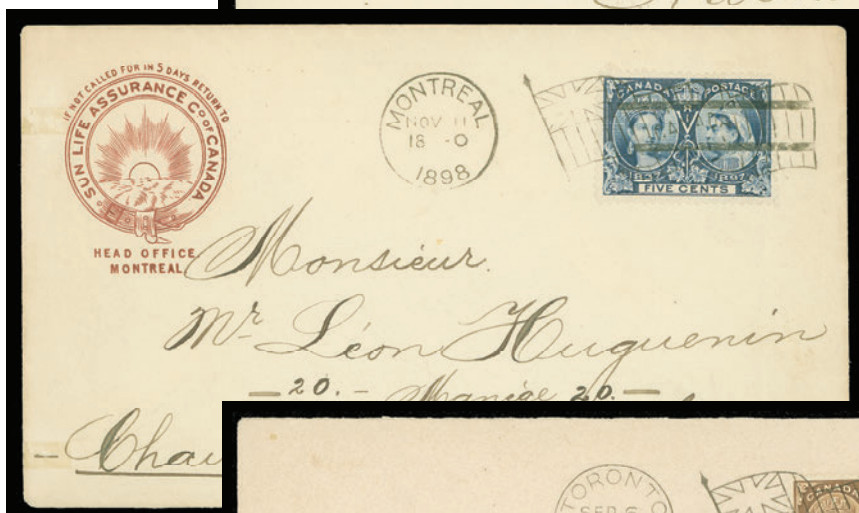 IF NOT CALLED FOR IN 5 DAYS RETURN TO
SUN LIFE ASSURANCE Co OF CANADA
HEAD OFFICE
MONTREAL
MONTREAL
NOV 11
18 - O
1898
CANADA POSTAGE
1837 1897
FIVE CENTS
Monsieur.
Mr Léon Huguenin
— 20. — Manège 20. —
— Chau
TORONTO
SEP 6
CANADA